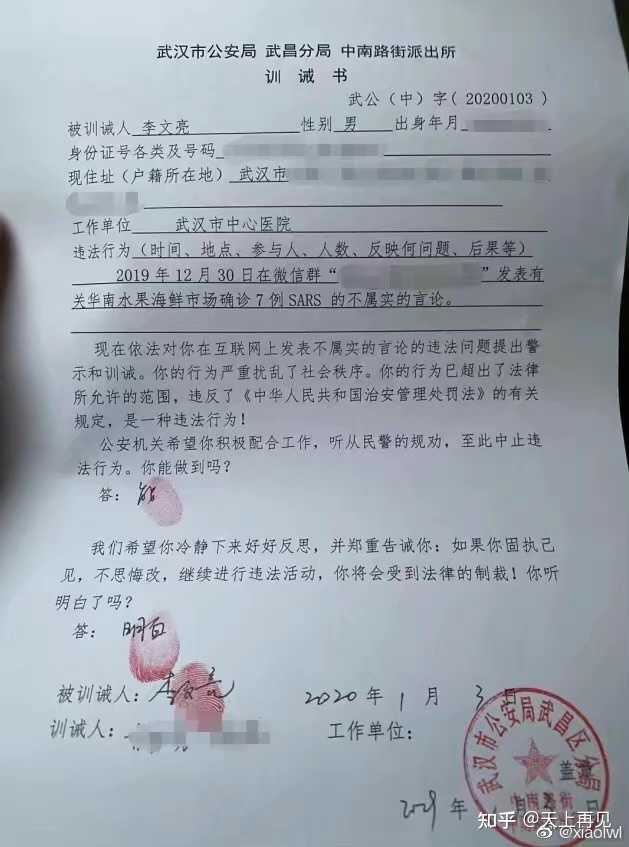 武汉市公安局 武昌分局 中南路街派出所
训 诫 书
武公（中）字（20200103）
被训诫人 李文亮 性别 男 出身年月
身份证号各类及号码
现住址（户籍所在地） 武汉市
工作单位 武汉市中心医院
违法行为（时间、地点、参与人、人数、反映何问题、后果等）
2019年12月30日在微信群“ ”发表有
关华南水果海鲜市场确诊7例SARS 的不属实的言论。
现在依法对你在互联网上发表不属实的言论的违法问题提出警
示和训诫。你的行为严重扰乱了社会秩序。你的行为已超出了法律
所允许的范围，违反了《中华人民共和国治安管理处罚法》的有关
规定，是一种违法行为！
公安机关希望你积极配合工作，听从民警的规劝，至此中止违
法行为。你能做到吗？
答：能
我们希望你冷静下来好好反思，并郑重告诫你：如果你固执己
见，不思悔改，继续进行违法活动，你将会受到法律的制裁！你听
明白了吗？
答：明白
被训诫人：李文亮 2020年1月3日
训诫人： 工作单位：
武汉市公安局武昌区分局
盖
中南路街
年 月 日
知乎 @天上再见
@xiaolwl